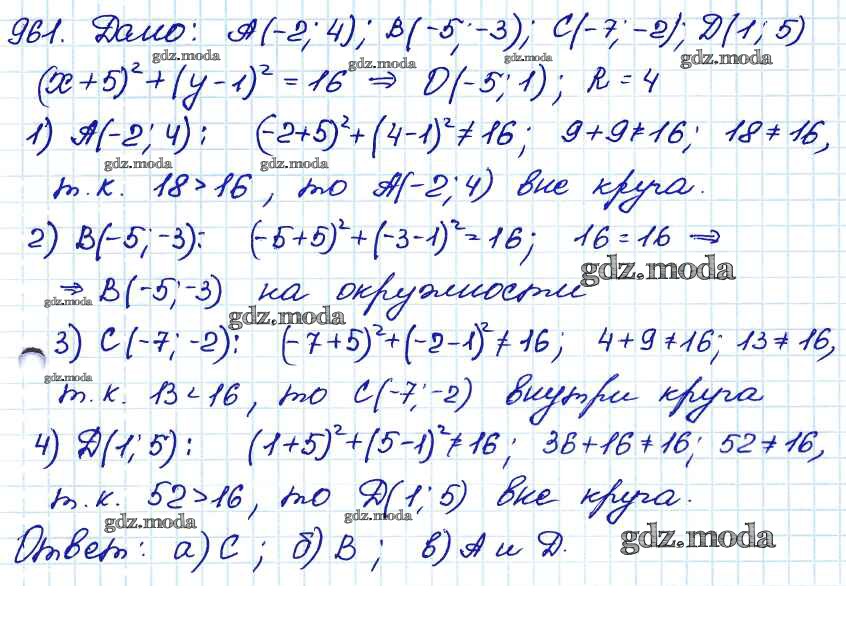 961. Дано: A(-2; 4); B(-5; -3); C(-7; -2); D(1; 5)
gdz.moda gdz.moda gdz.moda gdz.moda
(x+5)² + (y-1)² = 16 ⇒ O(-5; 1); R = 4
1) A(-2; 4): (-2+5)² + (4-1)² ≠ 16; 9+9≠16; 18≠16,
gdz.moda gdz.moda
т.к. 18 > 16, то A(-2; 4) вне круга.
2) B(-5; -3): (-5+5)² + (-3-1)² = 16; 16 = 16 ⇒
gdz.moda
⇒ B(-5; -3) на окружности
gdz.moda gdz.moda
3) C(-7; -2): (-7+5)² + (-2-1)² ≠ 16; 4+9≠16; 13≠16,
gdz.moda
т.к. 13 < 16, то C(-7; -2) внутри круга
4) D(1; 5): (1+5)² + (5-1)² ≠ 16; 36+16≠16; 52≠16,
т.к. 52 > 16, то D(1; 5) вне круга.
gdz.moda gdz.moda
Ответ: а) C; б) B; в) A и D.
gdz.moda